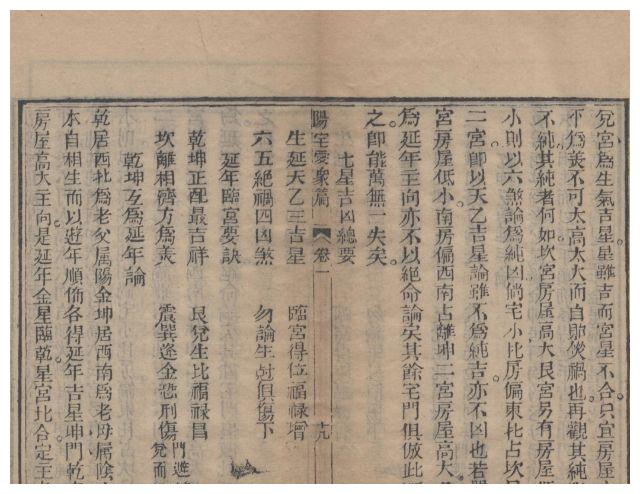 兌宮為生氣吉星星雖吉而宮星不合只宜房屋
下為羙不可太高太大而自貽伖禍也再觀其純
不純其純者何如坎宮房屋高大艮宮另有房屋
小則以六煞論為純凶倘宅小比房偏東北占坎艮
二宮卽以天乙吉星論雖不為純吉亦不凶也若
宮房屋低小南房偏西南占離坤二宮房屋高大
為延年主向亦不以絕命論矣其餘宅門俱倣此
之卽能萬無一失矣
七星吉凶總要
生延天乙三吉星 臨宮得位福祿增
六五絕禍四凶煞 勿論生尅俱傷下
延年臨宮要訣
乾坤正配最吉祥 艮兌生比福祿昌
坎離相濟方為羙 震巽逢金恐刑傷
乾坤互為延年論
乾居西北為老父属陽金坤居西南為老母属陰
本自相生而以遊年順佈各得延年吉星坤門乾
房屋高大主向是延年金星臨乾星宮比合定主
陽宅愛眾篇 卷一 十九